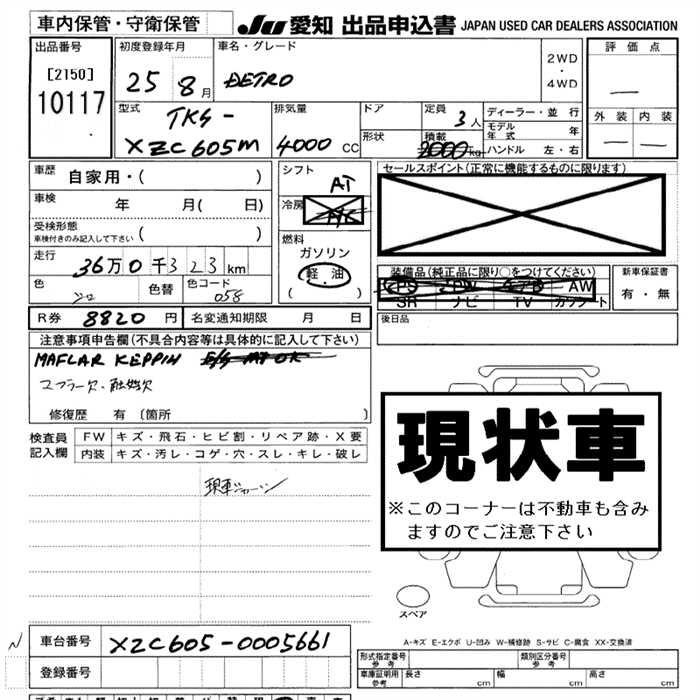 車内保管・守衛保管
JU 愛知 出品申込書 JAPAN USED CAR DEALERS ASSOCIATION
出品番号
[2150]
10117
初度登録年月
25 8月
車名・グレード
DETRO
2WD
・
4WD
評価点
—
外装 内装
— —
型式
TKG-
XZC605M
排気量
4000 CC
ドア
形状
定員
3人
積載
2000kg
ディーラー・並行
モデル年式 年
ハンドル 左・右
車歴 自家用・( )
車検 年 月( 日)
受検形態
車検付きのみ記入して下さい ( )
走行 36万0千323km
色 シロ 色替 色コード 058
シフト AT
冷房 A/C
燃料
ガソリン
軽・油
( )
セールスポイント(正常に機能するものに限ります)
装備品(純正品に限り○をつけてください)
PS PW AW
SR ナビ TV カワシート
新車保証書
有・無
R券 8820円 名変通知期限 月 日
後日品
注意事項申告欄(不具合内容等は具体的に記入して下さい)
MAFLAR KEPPIN
マフラー欠・触媒欠
修復歴 有〔箇所 〕
検査員
記入欄
FW キズ・飛石・ヒビ割・リペア跡・X要
内装 キズ・汚レ・コゲ・穴・スレ・キレ・破レ
現状車
※このコーナーは不動車も含み
ますのでご注意下さい
スペア
A-キズ E-エクボ U-凹み W-補修跡 S-サビ C-腐食 XX-交換済
車台番号 XZC605-0005661
登録番号
形式指定番号
参考
類別区分番号
参考
車庫証明用
参考
長さ cm 幅 cm 高さ cm